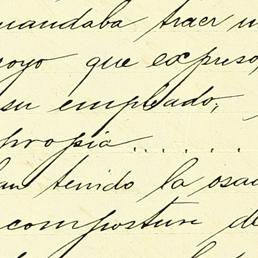 mandaba traer u
oyo que expreso,
su empleado;
propia ........
an tenido la osa
composture de